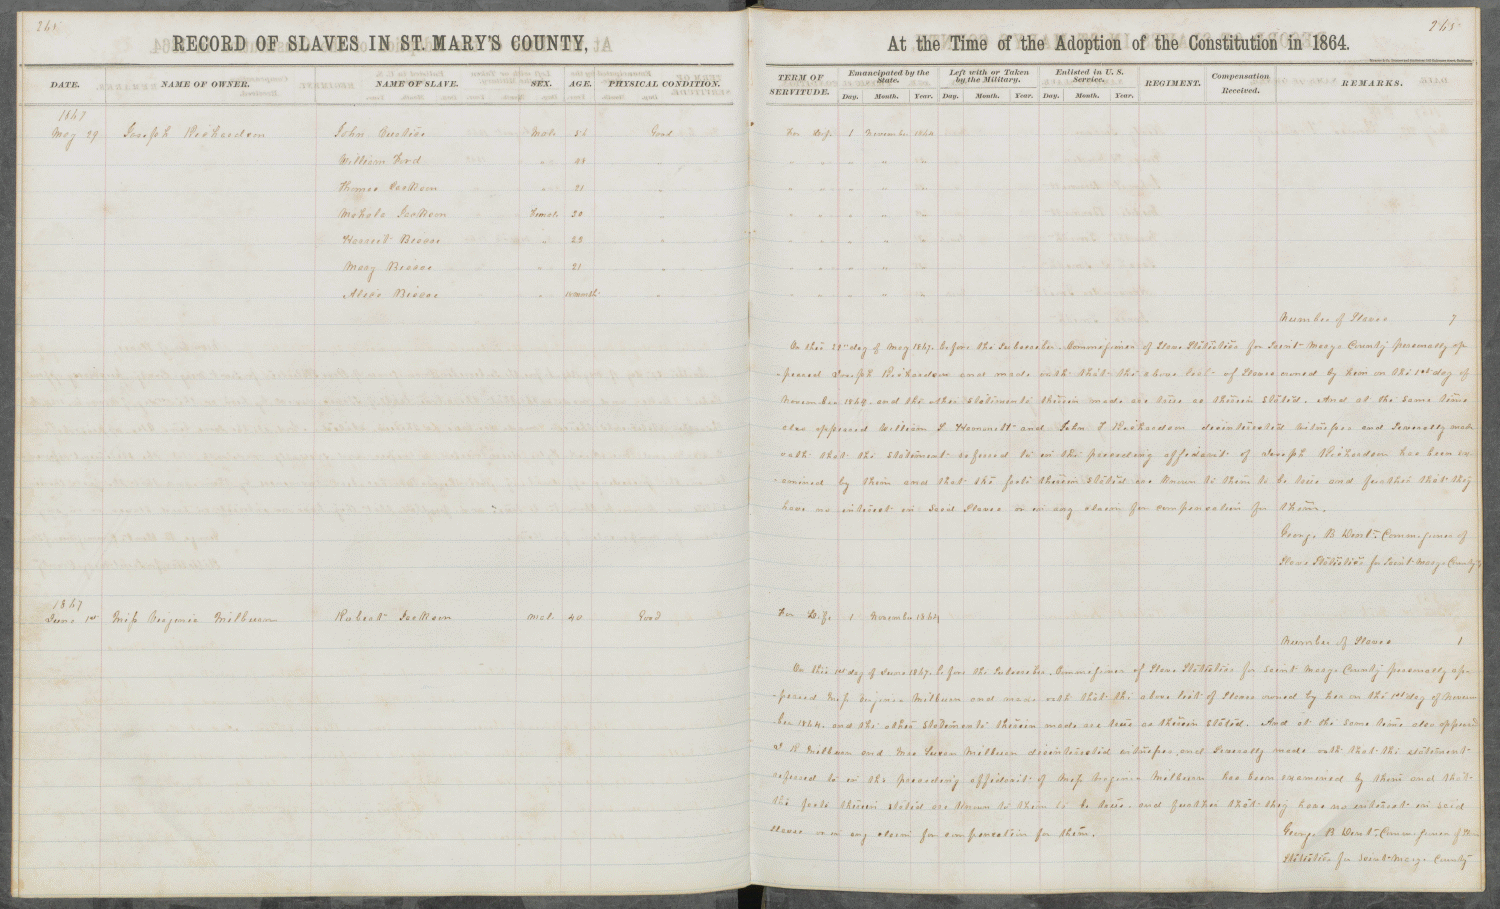 265
RECORD OF SLAVES IN ST. MARY'S COUNTY,
DATE. NAME OF OWNER. NAME OF SLAVE. SEX. AGE. PHYSICAL CONDITION.
1867
May 29 Joseph Richardson John Curtise Male 56 Good
William Ford " 48 "
Thomas Jackson " 21 "
Mahala Jackson Female 30 "
Harriet Biscoe " 23 "
Mary Biscoe " 21 "
Alice Biscoe " months "
1867
June 1st Miss Virginia Milburn Robert Jackson Male 40 Good
265
At the Time of the Adoption of the Constitution in 1864.
TERM OF SERVITUDE. Emancipated by the State. Left with or Taken by the Military. Enlisted in U. S. Service. REGIMENT. Compensation Received. REMARKS.
Day. Month. Year. Day. Month. Year. Day. Month. Year.
For Life 1 November 1864
" " " " "
" " " " "
" " " " "
" " " " "
" " " " "
" " " " "
Number of Slaves 7
On this 29th day of May 1867. before the Subscriber Commissioner of Slave Statistics for Saint Marys County personally ap-
-peared Joseph Richardson and made oath that the above list of Slaves owned by him on the 1st day of
November 1864. and the other statements therein made are true as therein stated. And at the same time
also appeared William S Hammett and John F Richardson disinterested witnesses and severally made
oath that the statement referred to in the preceeding affidavit of Joseph Richardson has been ex-
amined by them and that the facts therein stated are known to them to be true and further that they
have no interest in said Slaves or in any claim for compensation for them.
George B Dent. Commissioner of
Slave Statistics for Saint Marys County
For Life 1 November 1864
Number of Slaves 1
On this 1st day of June 1867. before the Subscriber Commissioner of Slave Statistics for Saint Marys County personally ap-
-peared Miss Virginia Milburn and made oath that the above list of Slaves owned by her on the 1st day of Novem
ber 1864. and the other statements therein made are true as therein stated. And at the same time also appeared
J R Milburn and Mrs Susan Milburn disinterested witnesses and severally made oath that the statement
referred to in the preceeding affidavit of Miss Virginia Milburn has been examined by them and that
the facts therein stated are known to them to be true. and further that they have no interest in said
Slaves or in any claim for compensation for them.
George B Dent. Commissioner of Slave
Statistics for Saint Marys County